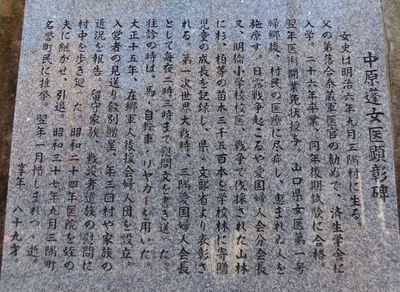 中原蓬女医顕彰碑
女史は明治六年九月三隅村に生る。
父の蕃落合泰蔵軍医官の勧めで、済生学舎に
入学。二十六年卒業、同年後期試験に合格。
翌年医術開業免状授与。山口県女医第一号
帰郷後、村民の医療に尽瘁し、恵まれぬ人を
施療す。日露戦争起こるや愛国婦人会分会長
又、明倫小学校校医。戦争で伐採された山林
に杉、桧等の苗木三千五百本を学校林に寄贈
児童の成長を記録し、県・文部省より表彰さ
れる。第一次世界大戦時、三隅愛国婦人会長
として毎夜二時三時まで慰問文を書き送った
往診の時は、馬、自転車、リヤカーを用いた。
大正十五年、在郷軍人後援会婦人団を設立。
入営者の見送り餞別贈呈、年三回村や家族の
近況を報告。留守家族、戦没者遺族の慰問に
村中を歩き廻った。昭和二十四年医院を姪の
夫に継がせ、引退。昭和三十七年九月三隅町
名誉町民に推挙。翌年一月惜しまれつゝ逝。
享年 八十九才